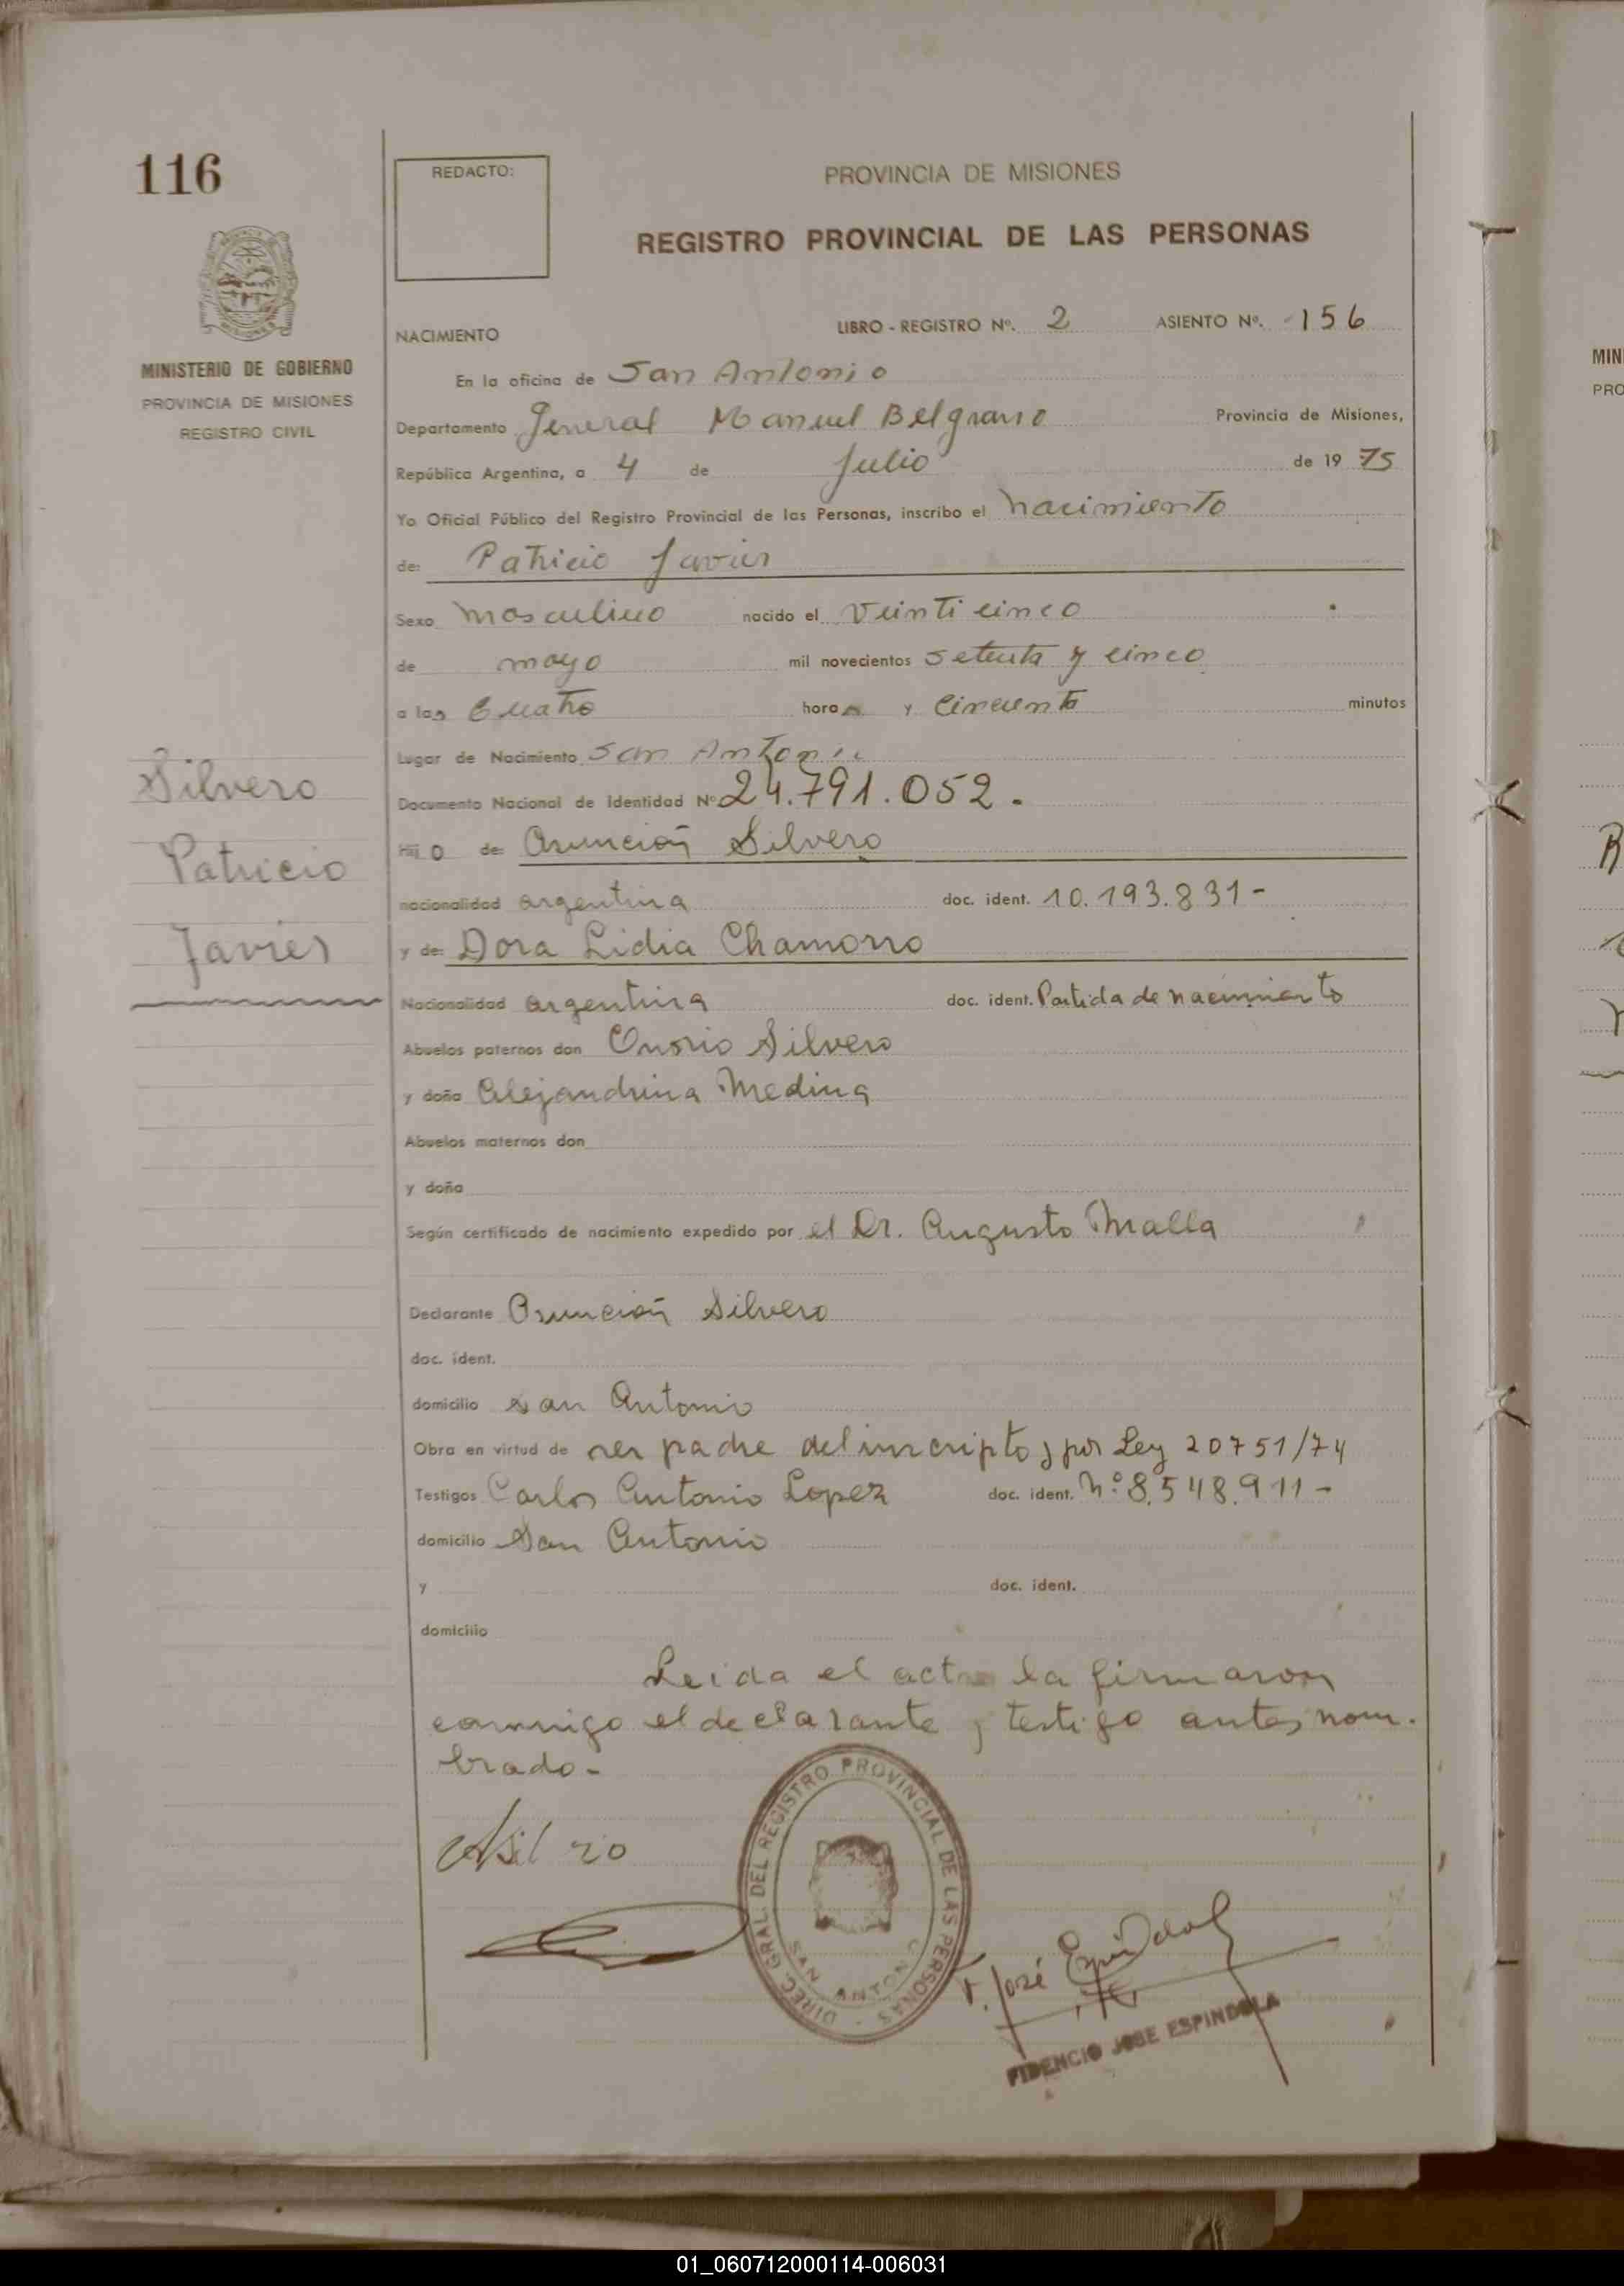 116
REDACTO:
PROVINCIA DE MISIONES
REGISTRO PROVINCIAL DE LAS PERSONAS
MINISTERIO DE GOBIERNO
PROVINCIA DE MISIONES
REGISTRO CIVIL
NACIMIENTO
LIBRO - REGISTRO Nº. 2 ASIENTO Nº. 156
En la oficina de San Antonio
Departamento General Manuel Belgrano Provincia de Misiones,
República Argentina, a 4 de Julio de 19 75
Yo Oficial Público del Registro Provincial de las Personas, inscribo el nacimiento
de: Patricio Javier
Sexo masculino nacido el veinticinco
de mayo mil novecientos setenta y cinco
a las Cuatro horas y Cincuenta minutos
Lugar de Nacimiento San Antonio
Documento Nacional de Identidad Nº 24.791.052.
Silvero
Patricio
Javier
Hijo de: Asunción Silvero
nacionalidad argentina doc. ident. 10.193.831-
y de: Dora Lidia Chamorro
Nacionalidad argentina doc. ident. Partida de nacimiento
Abuelos paternos don Onorio Silvero
y doña Alejandrina Medina
Abuelos maternos don
y doña
Según certificado de nacimiento expedido por el Dr. Augusto Malla
Declarante Asunción Silvero
doc. ident.
domicilio San Antonio
Obra en virtud de ser padre del inscripto y por Ley 20751/74
Testigos Carlos Antonio Lopez doc. ident. Nº 8.548.911-
domicilio San Antonio
y doc. ident.
domicilio
Leida el acta la firmaron
conmigo el declarante y testigo antes nom.
brado-
DIREC. GRAL. DEL REGISTRO PROVINCIAL DE LAS PERSONAS -
SAN ANTONIO
F. José Espindola
FIDENCIO JOSE ESPINDOLA
MIN
PRO
01_060712000114-006031